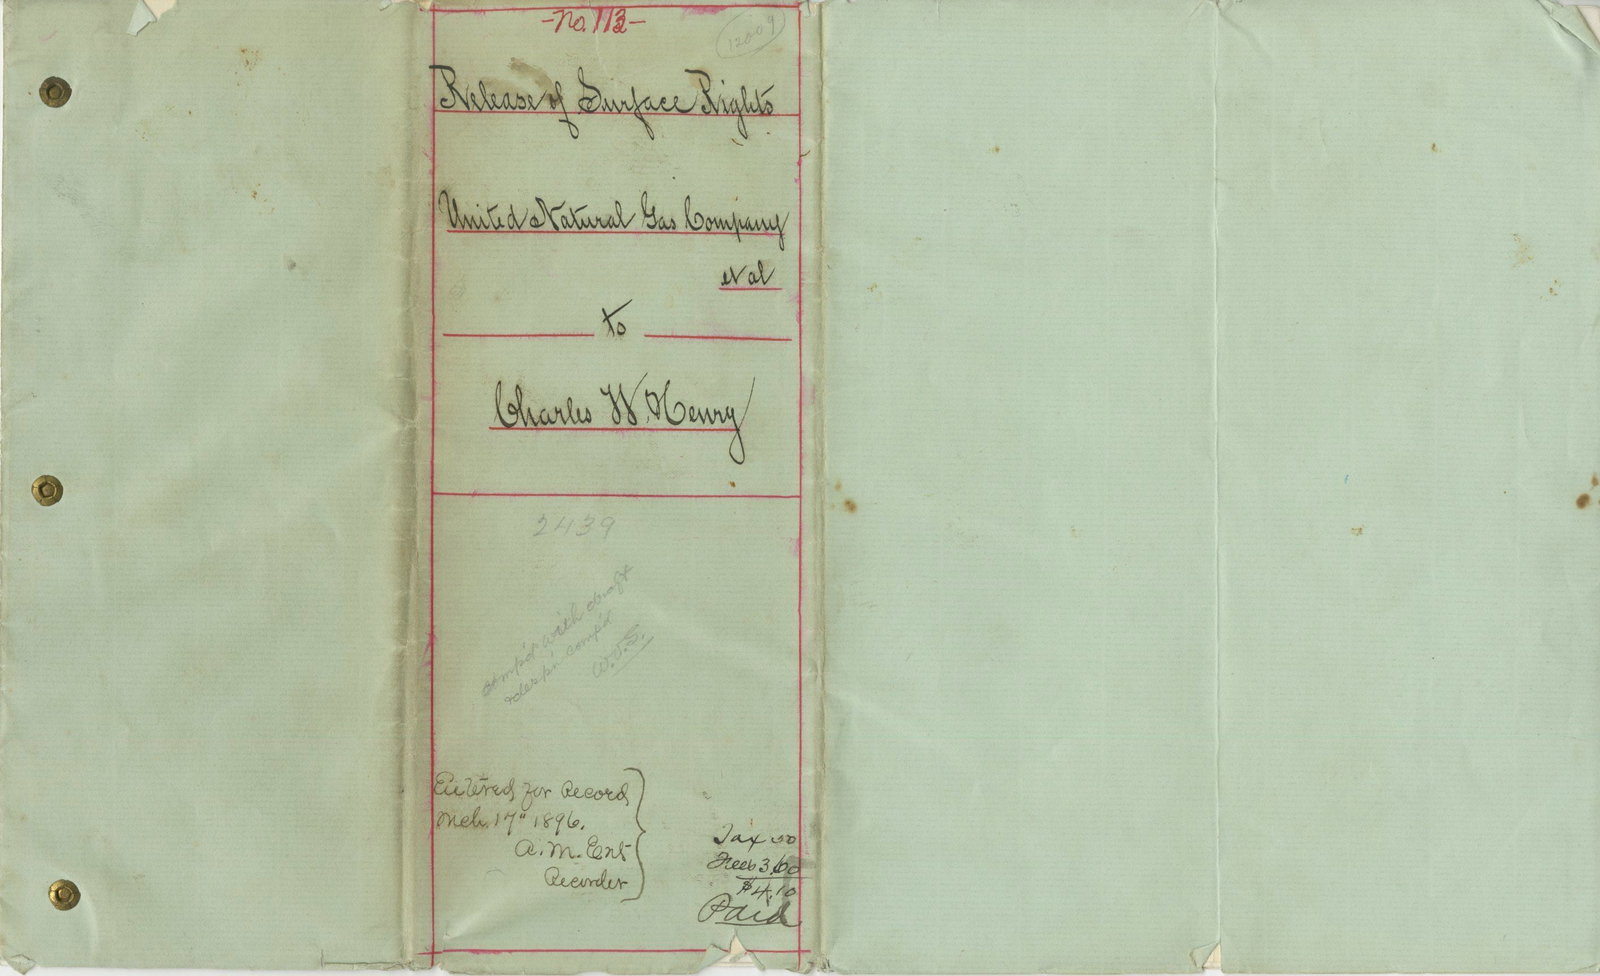 -No. 113-
12009
Release of Surface Rights
United Natural Gas Company
et al
to
Charles W. Henry
2439
comp'd with draft
& des'p'n comp'd
Entered for Record
Mch. 17" 1896.
A. M. Ent
Recorder
Tax 50
Fees 3.60
$4.10
Paid